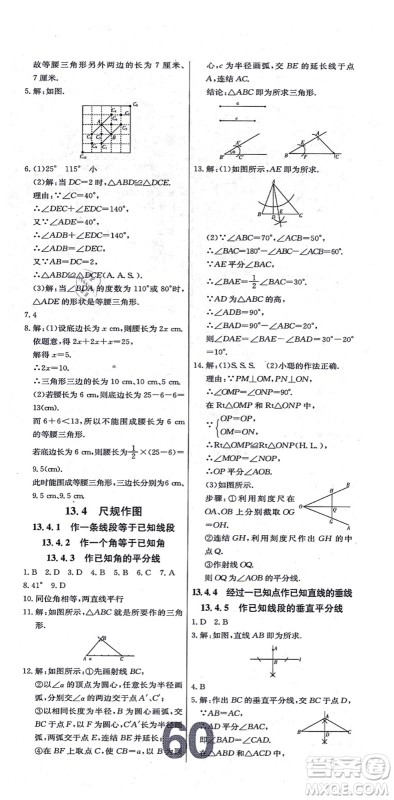 故等腰三角形另外两边的长为 7厘米、
7厘米.
5.解:如图.
6.(1)25° 115° 小
(2)解:当 DC=2 时,△ABD≌△DCE.
理由:∵∠C=40°,
∴∠DEC+∠EDC=140°.
又∵∠ADE=40°,
∴∠ADB+∠EDC=140°,
∴∠ADB=∠DEC.
又∵AB=DC=2,
∴△ABD≌△DCE(A.A.S.).
(3)解:当∠BDA 的度数为 110°或 80°时,
△ADE 的形状是等腰三角形.
7.4
8.解:(1)设底边长为 x cm,则腰长为 2x cm.
依题意,得 2x+2x+x=25.
解得 x=5.
∴2x=10.
∴三角形三边的长为 10 cm,10 cm,5 cm.
(2)若腰长为 6 cm,则底边长为 25-6-6=
13(cm).
而 6+6<13,所以不能围成腰长为 6 cm
的等腰三角形.
若底边长为 6 cm,则腰长为 1/2×(25-6)=
9.5(cm).
此时能围成等腰三角形,三边长分别为 6 cm,
9.5 cm,9.5 cm.
13.4 尺规作图
13.4.1 作一条线段等于已知线段
13.4.2 作一个角等于已知角
13.4.3 作已知角的平分线
8.41°
10.同位角相等,两直线平行
11.解:如图所示,△ABC 即为所求.
12.解:如图所示:①先画射线 BD,
②以∠α 的顶点为圆心,任意长为半径画
③以相同长度为半径,B 为圆心,画弧,交
④在 BF 上取点 C,
心,c 为半径画弧,交 BE 的延长线于点
A,连结 AC.
结论:△ABC 即为所求三角形.
13.解:(1)如图所示,AE 即为所求.
(2)∵∠ABC=70°,∠ACB=50°,
∴∠BAC=60°.
又∵AE 平分∠BAC,
∴∠BAE=1/2∠BAC=30°.
∵∠ADB=90°,∠ABD=70°,
∴∠BAD=20°,
∴∠DAE=∠BAE-∠BAD=30°-20°=
10°.
14.解:(1)S.S.S. (2)小聪的作法正确.
理由:∵PM⊥OM,PN⊥ON,
∴∠OMP=∠ONP=90°.
在 Rt△OMP 和 Rt△ONP 中,
∵ OP=OP,
OM=ON,
∴Rt△OMP≌Rt△ONP(H.L.).
∴∠MOP=∠NOP,
∴OP 平分∠AOB.
(3)如图所示.
步骤:①利用刻度尺在
OA、OB 上分别截取 OG
=OH;②连结 GH,利用
刻度尺作出 GH 的中点
Q;③作射线 OQ,则 OQ
为∠AOB 的平分线.
13.4.4 经过一已知点作已知直线的垂线
13.4.5 作已知线段的垂直平分线
1.D 2.D
3.解:如图所示,直线 AB 即为所求.
4.B
5.解:作出 BC 的垂直平分线,交 BC 于点 D,
∵AB=AC,
∴AD 平分∠BAC,
即∠BAD=∠CAD.
在△ABD 和△ACD 中,
60